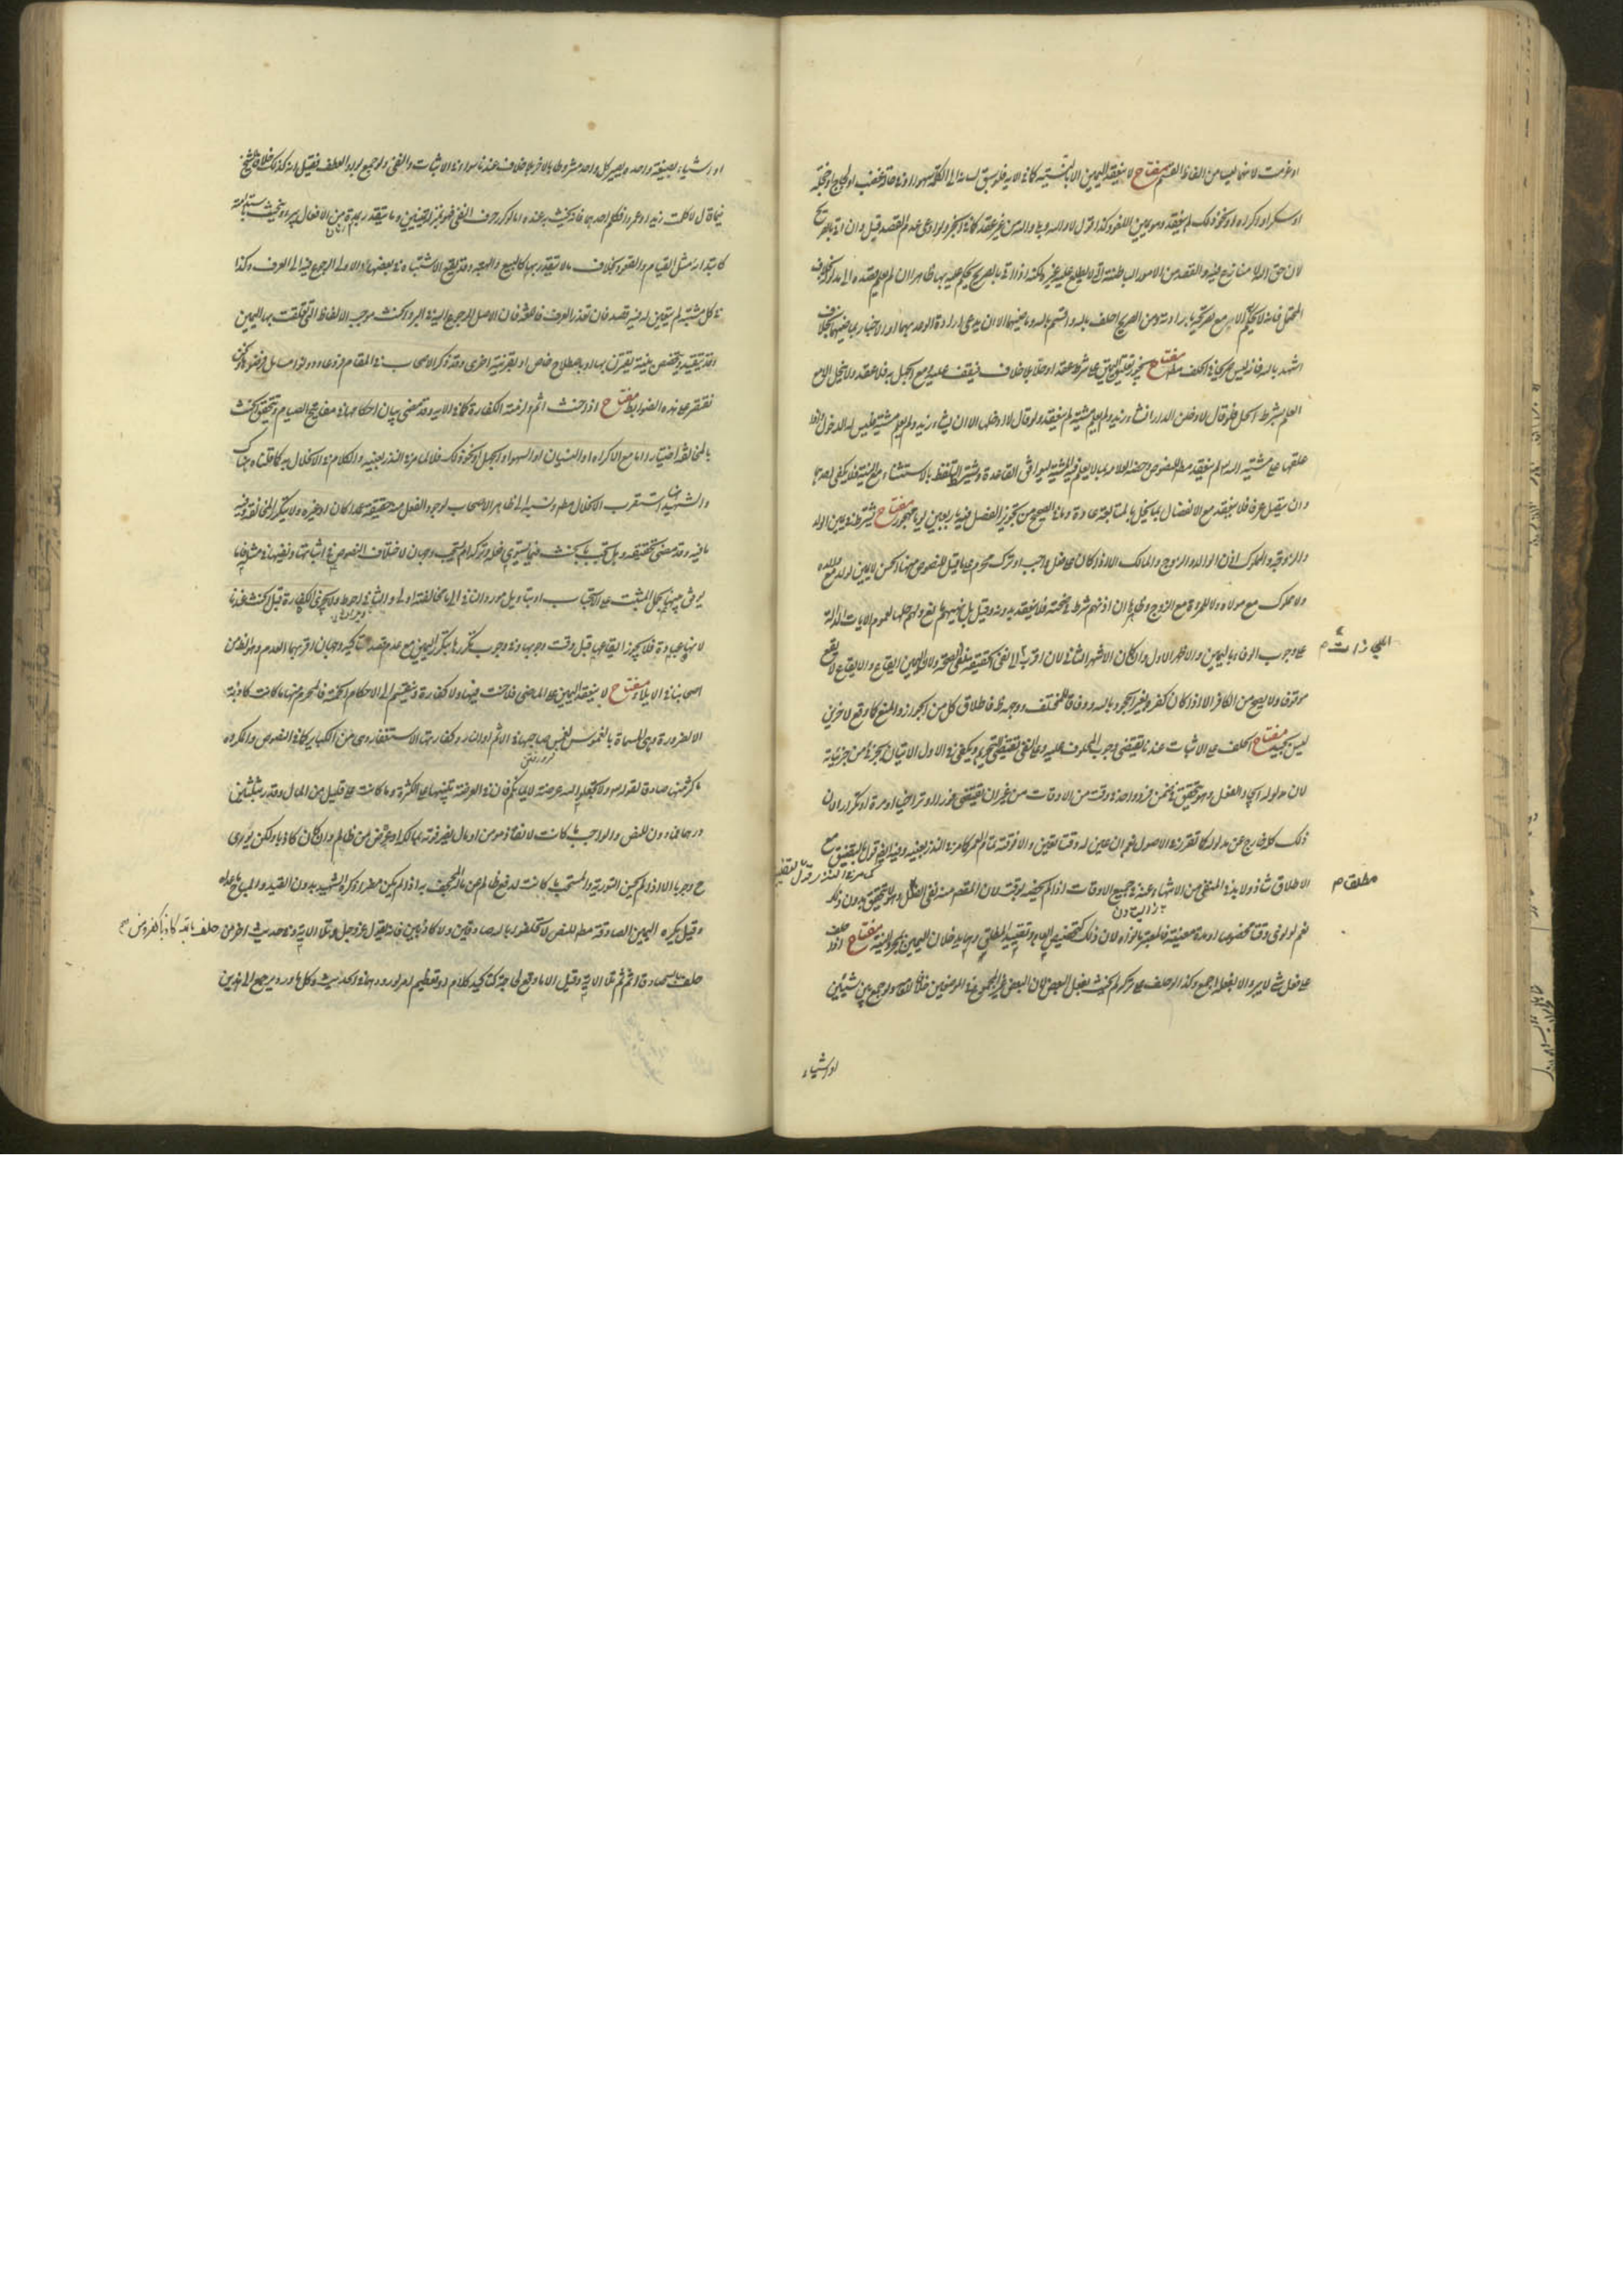 او عزمت لانها ليست من الفاظ القسم مفتاح لا ينعقد اليمين الا بالنية كما في الآية فلو سبق لسانه الى الكلمة سهوا او في حالة غضب او لجاج او عجلة
او سكر او اكراه او نحو ذلك لم ينعقد وهو يمين اللغو وكذا قول لا والله وبلى والله من غير عقد كما في الخبر ولو ادعى عدم القصد قبل وان اتى بالصريح
لان حق الله لا منازع فيه والقصد من الامور الباطنة التي لا يطلع عليه غيره ولكنه اذا اتى بالصريح يحكم عليه بها ظاهرا وان لم يعلم بقصده الى مدلوله بخلاف
المحتمل فانه لا يحكم الا مع تصريحه بارادته ومن الصريح احلف بالله واقسم بالله وماضيهما الا ان يدعي ارادة الوعد بهما او الاخبار بماضيهما بخلاف
اشهد بالله فانه ليس بصريح في الحلف مفتاح يجوز تعليق اليمين على شرط عقدا وحلا بلا خلاف فيقف عليه ومع الجهل به فلا عقد ولا ينحل الا مع
العلم بشرط الحل فلو قال لادخلن الدار ان شاء زيد ولم يعلم مشيته لم ينعقد ولو قال لا ادخلها الا ان يشاء زيد ولم يعلم مشيته فليس له الدخول
علقها على مشية الله لم ينعقد مط للنصوص وخصه العلامة بما لا يعلم فيه المشية ليوافق القاعدة ويشترط التلفظ بالاستثناء مع النية فلا يكفي احدهما
وان يتصل عرفا فلا ينعقد مع الانفصال بما يخل بالمتابعة عادة وما في الصحيح من تجويز الفصل فيه باربعين يوما مهجور مفتاح يشترط في يمين الولد
والزوجة والمملوك اذن الوالد والزوج والمالك الا اذا كان على فعل واجب او ترك محرم على ما قيل للنصوص منها الحسن لا يمين لولد مع والده
ولا مملوك مع مولاه ولا للمرأة مع الزوج وظاهرها ان اذنهم شرط في صحته فلا ينعقد بدونه وقيل بل نهيهم مانع ولهم حلها لعموم الايات الدالة
على وجوب الوفاء باليمين والاظهر الاول وان كان الاشهر الثاني لان اقرب الى نفي الحقيقة نفي الصحة ولان اليمين ايقاع والايقاع لا يقع
موقوفا ولا يصح من الكافر الا اذا كان كفره بغير الجحود بالله وفاقا للمختلف ووجهه ظ فاطلاق كل من الجواز والمنع كما وقع لاخرين
ليس بجيد مفتاح الحلف على الاثبات عندنا يقتضي وجوب المحلوف عليه وعلى النفي يقتضي التحريم ويكفي في الاول الاتيان بجزئي من جزئياته
لان مدلوله ايجاد الفعل وهو تحقيق في ضمن فرد واحد في وقت من الاوقات من غير ان يقتضي فورا او تراخيا او مرة او تكرارا لان
ذلك كله خارج عن مدلوله كما تقرر في الاصول نعم ان عين له وقت تعين والا فوقته تمام العمر كما مر في النذر بعينه وفيه ايضا قول بالتضييق مع
الاطلاق شاذ ولا بد في المنفي من الانتهاء عنه في جميع الاوقات اذا لم يخصه بوقت لان المقصد منه نفي الفعل وهو لا يتحقق بدون ذلك
نعم لو نوى وقتا مخصوصا او مدة معينة فالمعتبر ما نواه لان ذلك كتخصيص العام وتقييد المطلق وهما يدخلان اليمين بمجرد النية مفتاح اذا حلف
على فعل شيء لا يبر الا بفعله اجمع وكذا لو حلف على تركه لم يحنث بفعل البعض لان البعض غير المجموع في الموضعين خلافا للقاضي ولو جمع بين شيئين
او اشياء
مطلق م
او اشياء بصيغة واحدة يصير كل واحد مشروطا بالاخر بلا خلاف عندنا سواء في الاثبات والنفي ولو جمع بواو العطف فقيل انه كذلك خلافا للشيخ
فيما قال لا كلمت زيدا وعمروا فكلم احدهما فانه يحنث به عنده اما لو كرر حرف النفي فهو بمنزلة يمينين وما يتقدر بمدة من الافعال يبر ويحنث باستدامته
كابتدائه مثل القيام والقعود بخلاف ما لا يتقدر بها كالبيع والهبة وقد يقع الاشتباه في بعضها والاولى الرجوع فيه الى العرف وكذا
في كل مشتبه لم يتعين له فيه قصد فان فقد العرف فاللغة فان الاصل المرجوع اليه في البر والحنث موجب الالفاظ التي تعلقت بها اليمين
وقد يتقيد ويتخصص بنية تقترن بها او باصطلاح خاص او بقرينة اخرى وقد ذكر الاصحاب في المقام فروعا وونوا مسائل فرضوها ونحن
نقتصر على هذه الضوابط مفتاح اذا حنث اثم ولزمته الكفارة كما في الاية وقد مضى بيان احكامها في مفاتيح الصيام ويتحقق الحنث
بالمخالفة اختيارا اما مع الاكراه او النسيان او السهو او الجهل او نحو ذلك فلا لما مر في النذر بعينه والكلام في الانحلال به كما قلناه هناك
والشهيدان استقربا الانحلال مط ونسباه الى ظاهر الاصحاب لوجود الفعل منه حقيقة عمدا كان او غيره ولا يتكرر المخالفة وفيه
ما فيه وقد مضى تحقيقه وهل يجب ما يحنث فيما يستوي فعله وتركه ام يستحب وجهان لاختلاف النصوص في اثباتها ونفيها في مثله فاما
يوفق بينهما بحمل المثبت على الاستحباب او بتاويل موارد النافي الى ما مخالفته اولى والثاني احوط ولا يجزي الكفارة قبل الحنث عندنا
لانها عبادة فلا يجوز ايقاعها قبل وقت وجوبها وفي وجوب تكررها بتكرر اليمين مع عدم قصد التاكيد وجهان اقربهما العدم ومر الفهم من
اصحابنا في الايلاء مفتاح لا ينعقد اليمين على الماضي فلا حنث فيها ولا كفارة وينقسم الى الاحكام الخمسة فالمحرم منها ما كانت كاذبة
الا لضرورة وهي المسماة بالغموس لغمس صاحبها في الاثم او النار وكفارتها الاستغفار وهي من الكبائر كما في النصوص والمكروه
ما كثر منها صادقا لقوله تعالى ولا تجعلوا الله عرضة لايمانكم فان في العرضة تنبيها على الكثرة وما كانت على قليل من المال وقدر بثلثين
درهما فما دون للنص والواجب ما كانت لانقاذ مومن او مال يضر فوته بمالكه او عرض من ظالم وان كان كاذبا ولكن يوري
ح وجوبا الا اذا لم يحسن التورية والمستحب ما كانت لدفع ظالم عن ماله المجحف به اذا لم يكن مضرا وذكره الشهيد بدون القيد والمباح ما عداه
وقيل يكره اليمين الصادقة مط للنص لا تحلفوا بالله صادقين ولا كاذبين فانه يقول عز وجل وتلا الاية وفي حديث اخر من حلف بالله كاذبا كفر ومن
حلف بالله صادقا اثم ثم تلا الاية وقيل الا ما وقع في حاجة كتاكيد كلام او تعظيم امر لورودهما في الحديث وكل ما ورد يرجع الى هذين